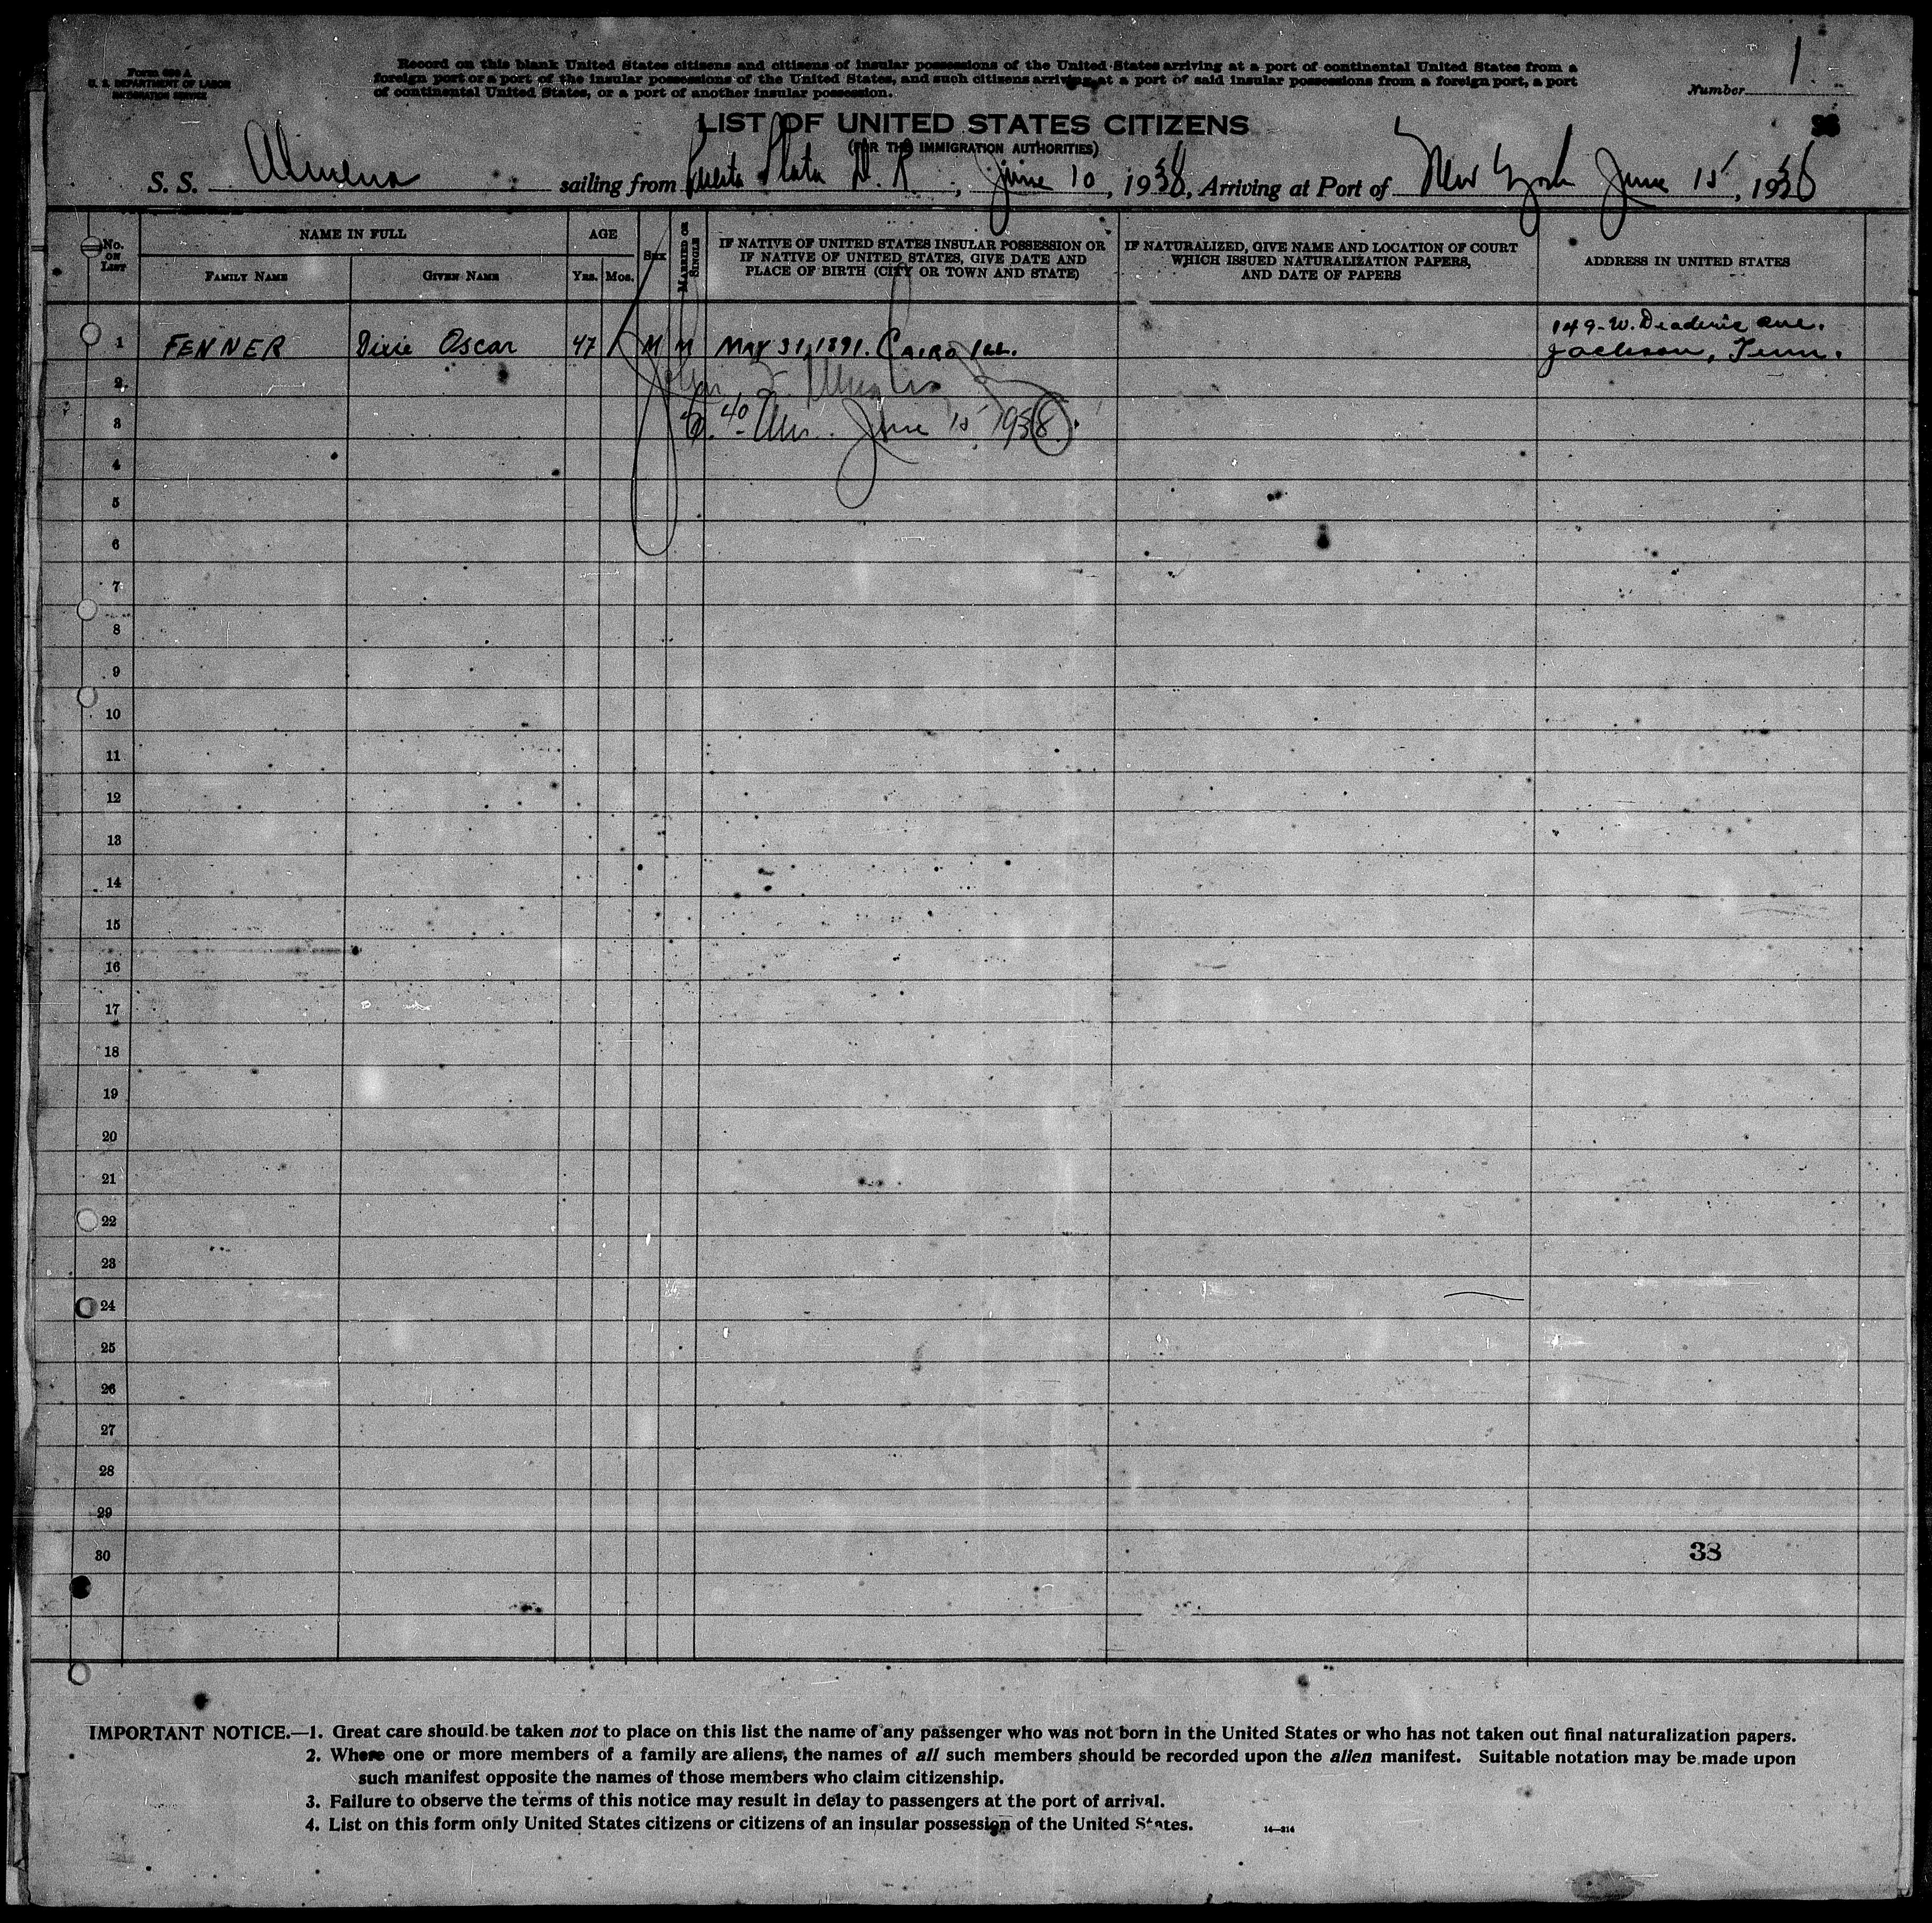 Form 630 A
U. S. DEPARTMENT OF LABOR
IMMIGRATION SERVICE
Record on this blank United States citizens and citizens of insular possessions of the United States arriving at a port of continental United States from a
foreign port or a port of the insular possessions of the United States, and such citizens arriving at a port of said insular possessions from a foreign port, a port
of continental United States, or a port of another insular possession.
Number 1
LIST OF UNITED STATES CITIZENS
(FOR THE IMMIGRATION AUTHORITIES)
S. S. sailing from Puerta Plata D. R., June 10, 1938, Arriving at Port of New York June 15, 1938
No. ON LIST
NAME IN FULL
FAMILY NAME
GIVEN NAME
AGE
YRS.
MOS.
SEX
MARRIED OR SINGLE
IF NATIVE OF UNITED STATES INSULAR POSSESSION OR
IF NATIVE OF UNITED STATES, GIVE DATE AND
PLACE OF BIRTH (CITY OR TOWN AND STATE)
IF NATURALIZED, GIVE NAME AND LOCATION OF COURT
WHICH ISSUED NATURALIZATION PAPERS,
AND DATE OF PAPERS
ADDRESS IN UNITED STATES
149-W. Deaderic Ave.
1 FENNER Dixie Oscar 47 M M MAY 31, 1891. CAIRO ILL. Jackson, Tenn.
2 John
3 6.40 Am. June 15, 1938.
4
5
6
7
8
9
10
11
12
13
14
15
16
17
18
19
20
21
22
23
24
25
26
27
28
29
30 38
IMPORTANT NOTICE.—1. Great care should be taken not to place on this list the name of any passenger who was not born in the United States or who has not taken out final naturalization papers.
2. Where one or more members of a family are aliens, the names of all such members should be recorded upon the alien manifest. Suitable notation may be made upon
such manifest opposite the names of those members who claim citizenship.
3. Failure to observe the terms of this notice may result in delay to passengers at the port of arrival.
4. List on this form only United States citizens or citizens of an insular possession of the United States. 14—214